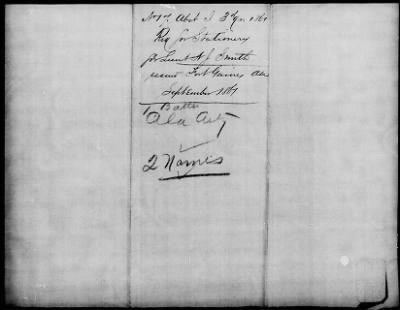 No 17. Abst I 3d Qr. 1861
Req for Stationery
for Lieut N J Smith
recruit Fort Gaines Ala
September 1861
1 Batta
Ala Arty
2 Names